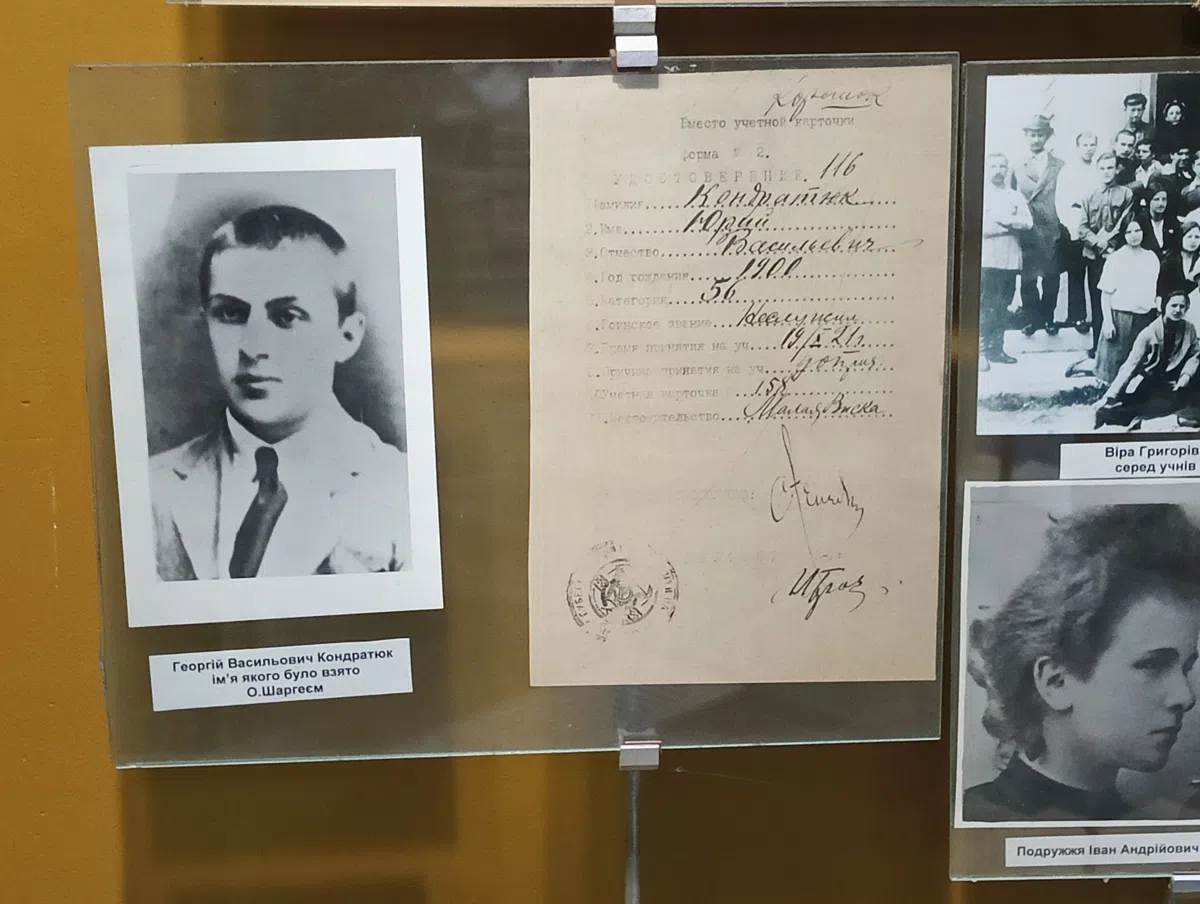 Георгій Васильович Кондратюк
ім'я якого було взято
О.Шаргеєм
Вместо учетной карточки
форма № 2.
УДОСТОВЕРЕНИЕ. 116
Фамилия..... Кондратюк
2.Имя........ Юрий
3.Отчество..... Васильевич
4.Год рождения.... 1900
5.Категория.... 56
6.Воинское звание... Неслужил
7.Время принятия на уч.... 19/X 21г
8.Причина принятия на уч..
Учетная карточка 158
Местожительство... Малая Виска
Віра Григорів
серед учнів
Подружжя Іван Андрійович